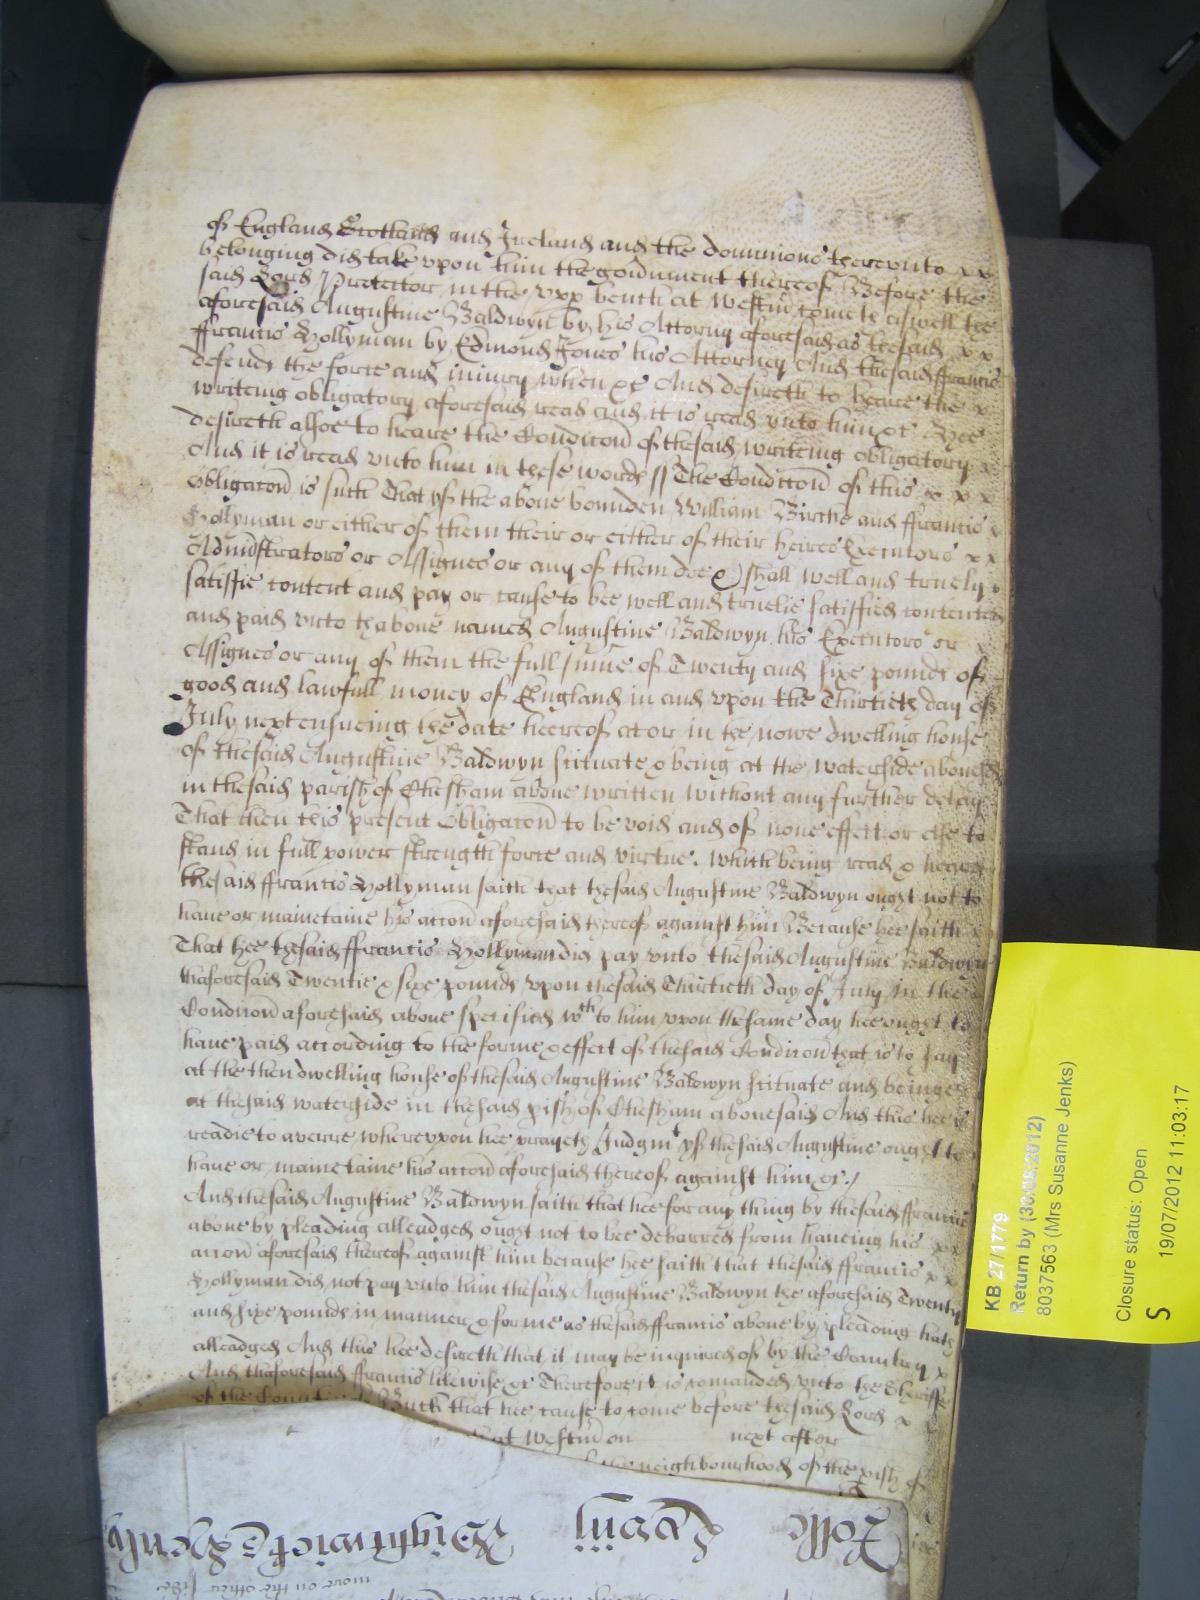 of England Scotland and Ireland and the dominions therevnto x x
belonging did take vpon him the gou'nment thereof Before the
said Lord Protector in the vpp bench at Westm' come aswell the
aforesaid Augustine Baldwyn by his Attorny aforesaid as thesaid x x
ffrancis Hollyman by Edmond Jones his Attorney And thesaid ffrancis
defends the force and iniury when &c And desireth to heare the x
writeing obligatory aforesaid read and it is read vnto him &c Hee
desireth alsoe to heare the Condic̃on of thesaid writeing obligatory x
And it is read vnto him in these words // The Condic̃on of this x x x
Obligac̃on is such That yf the aboue bounden William Birche and ffrancis x
Hollyman or either of them their or either of their heires Executors x x
Administrators or Assignes or any of them doe & shall well and truely x
satisfie content and pay or cause to bee well and truelie satisfied contented
and paid vnto thaboue named Augustine Baldwyn his Executors or x
Assignes or any of them the full sume of Twenty and sixe pounds of
good and lawfull money of England in and vpon the Thirtieth day of
July next ensueing the date heereof at or in the nowe dwelling house
of thesaid Augustine Baldwyn scituate & being at the waterside abouesaid
in thesaid parish of Chesham aboue written without any further delay
That then this present Obligac̃on to be void and of none effect or else to
stand in full power strength force and virtue. Which being read & heard
thesaid ffrancis Hollyman saith that thesaid Augustine Baldwyn ought not to
haue or mainetaine his acc̃on aforesaid thereof against him Because hee saith x
That hee thesaid ffrancis Hollyman did pay vnto thesaid Augustine Baldwyn
thaforesaid Twentie & sixe pounds vpon thesaid Thirtieth day of July in the
Condic̃on aforesaid aboue specified wth to him vpon the same day hee ought to
haue paid according to the forme & effect of thesaid Condic̃on that is to say
at the then dwelling house of thesaid Augustine Baldwyn scituate and beinge
at thesaid waterside in thesaid pish of Chesham abouesaid And this hee is
readie to averre wherevpon hee prayeth Judgmt yf thesaid Augustine ought to
haue or mainetaine his acc̃on aforesaid thereof against him &c./
And thesaid Augustine Baldwyn saith that hee for any thing by thesaid ffrancis
aboue by pleading alleadged ought not to bee debarred from haueing his x x
acc̃on aforesaid thereof against him because hee saith that thesaid ffrancis x x
Hollyman did not pay vnto him thesaid Augustine Baldwyn the aforesaid Twenty
and sixe pounds in manner & forme as thesaid ffrancis aboue by pleading hath
alleadged And this hee desireth that it may be inquired of by the Countrey x
And thaforesaid ffrancis likewise &c Therefore it is com̃anded vnto the Sheriffe
of the Countie Buck that hee cause to come before thesaid Lord x x
at Westm' on next after
the neighbourhood of the pish of
Rolle Lxviij Wightwick & Henly
more on the other side
KB 27/1779
Return by (30/08/2012)
8037563 (Mrs Susanne Jenks)
Closure status: Open
S 19/07/2012 11:03:17